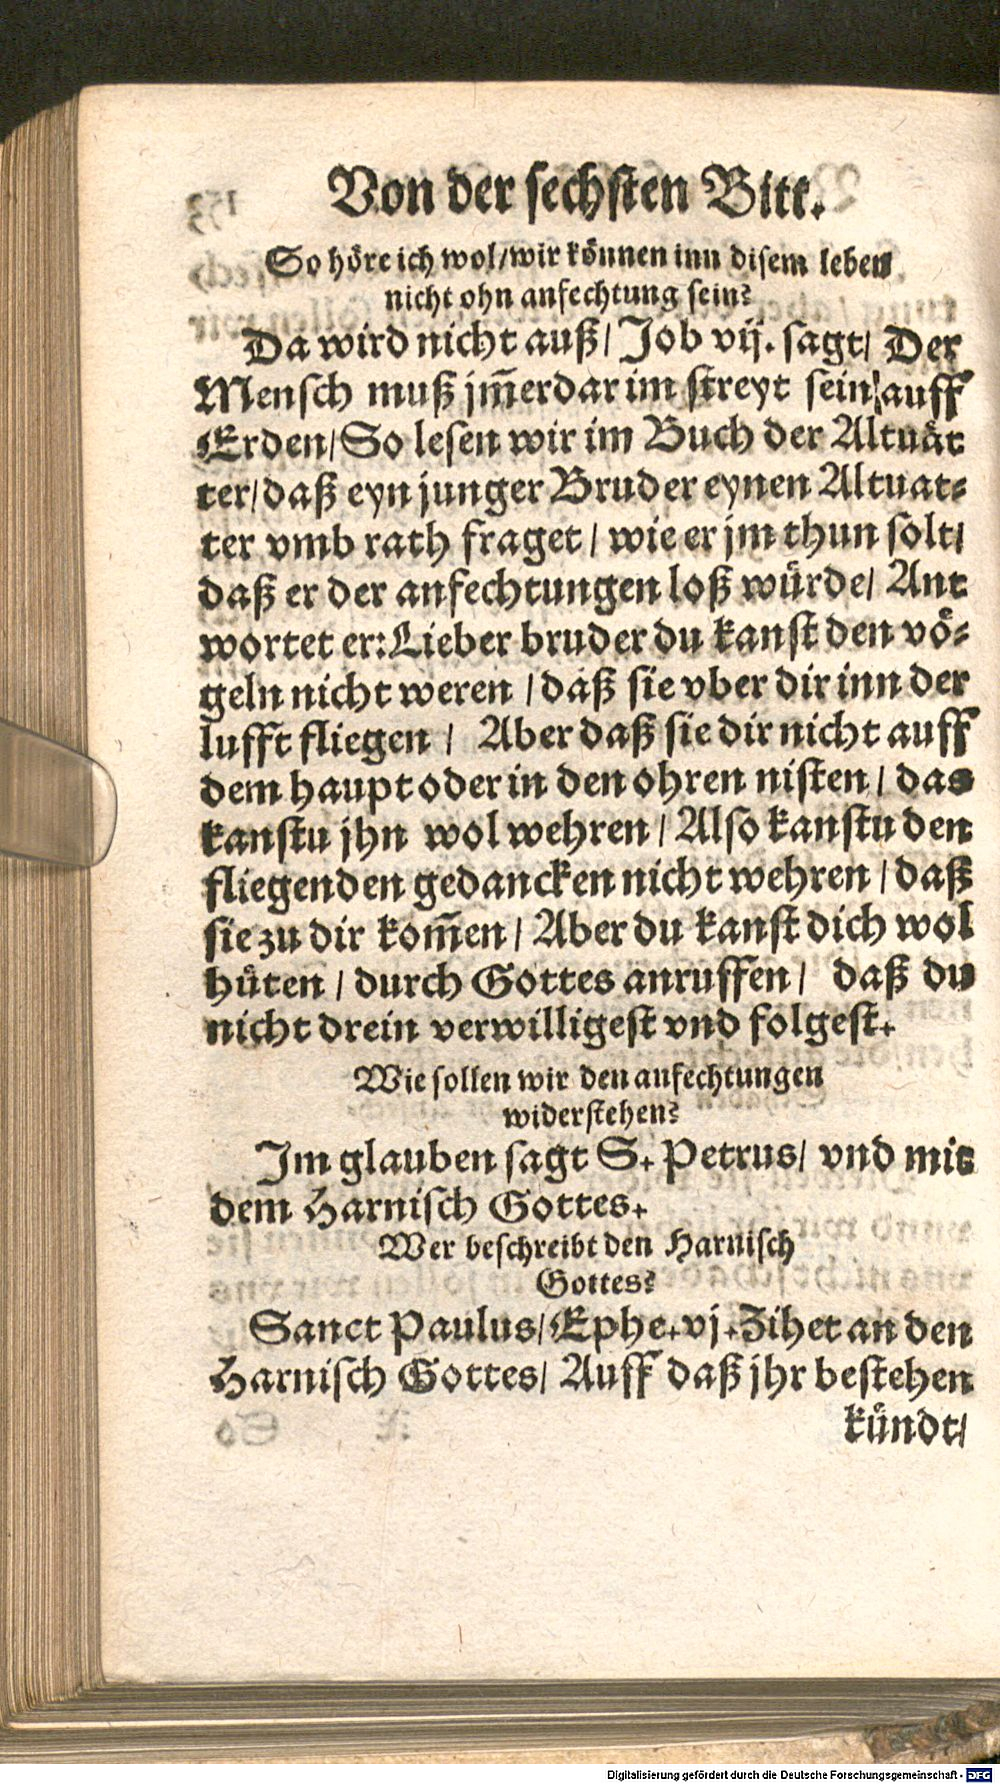 Von der sechsten Bitt.
So höre ich wol/wir können inn disem leben
nicht ohn anfechtung sein?
Da wird nicht auß/ Job vij. sagt/ Der
Mensch muß jm̃erdar im streyt sein/auff
Erden/So lesen wir im Buch der Altuät
ter/daß eyn junger Bruder eynen Altuat-
ter vmb rath fraget / wie er jm thun solt/
daß er der anfechtungen loß würde/ Ant
wortet er:Lieber bruder du kanst den vö-
geln nicht weren / daß sie vber dir inn der
lufft fliegen / Aber daß sie dir nicht auff
dem haupt oder in den ohren nisten / das
kanstu jhn wol wehren / Also kanstu den
fliegenden gedancken nicht wehren / daß
sie zu dir kom̃en / Aber du kanst dich wol
hüten / durch Gottes anruffen / daß du
nicht drein verwilligest vnd folgest.
Wie sollen wir den anfechtungen
widerstehen?
Im glauben sagt S. Petrus/ vnd mit
dem Harnisch Gottes.
Wer beschreibt den Harnisch
Gottes?
Sanct Paulus/Ephe.vj.Zihet an den
Harnisch Gottes/ Auff daß jhr bestehen
kündt/
Digitalisierung gefördert durch die Deutsche Forschungsgemeinschaft - DFG